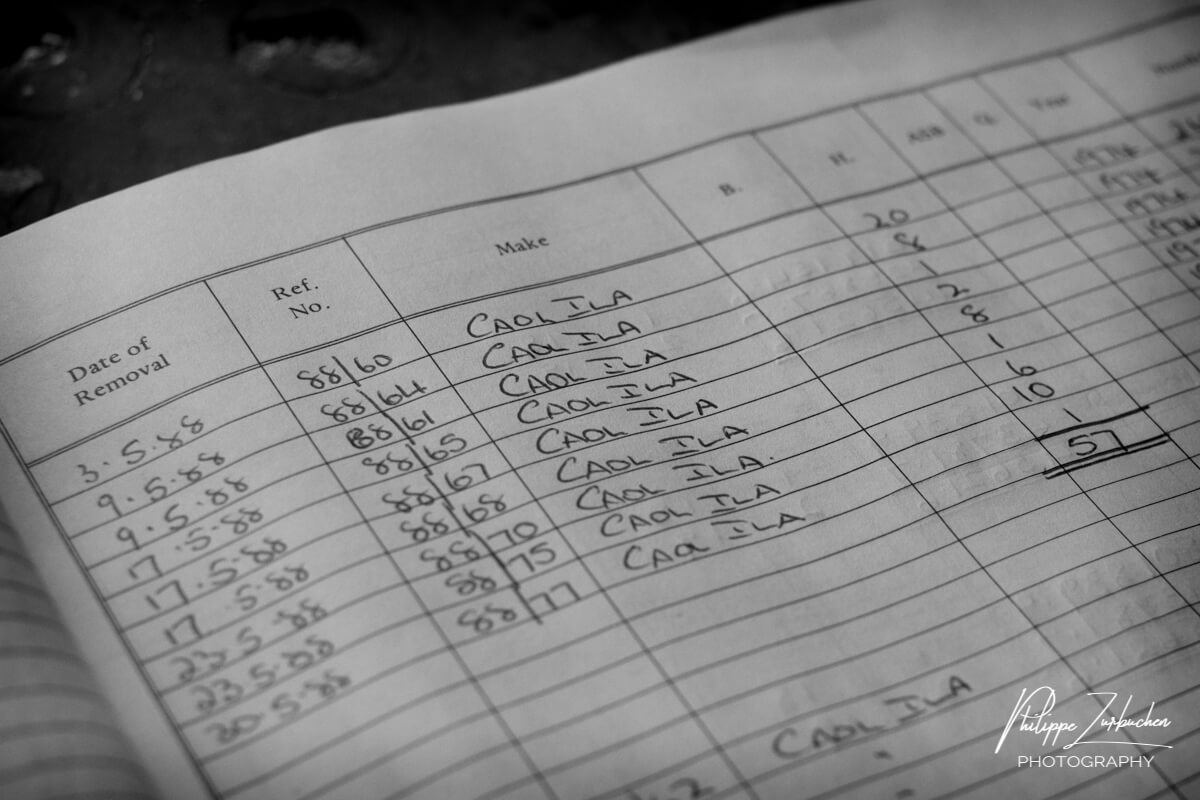 Date of Removal Ref. No. Make B. H. ASB Q. Year
3.5.88 88/60 CAOL ILA 20 1974
9.5.88 88/64 CAOL ILA 8 1974
9.5.88 88/61 CAOL ILA 1 1974
17.5.88 88/65 CAOL ILA 2 1974
17.5.88 88/67 CAOL ILA 8
17.5.88 88/68 CAOL ILA 1
23.5.88 88/70 CAOL ILA. 6
23.5.88 88/75 CAOL ILA 10
30.5.88 88/77 CAOL ILA 1
57
CAOL ILA
"
"
Philippe Zurbuchen
PHOTOGRAPHY